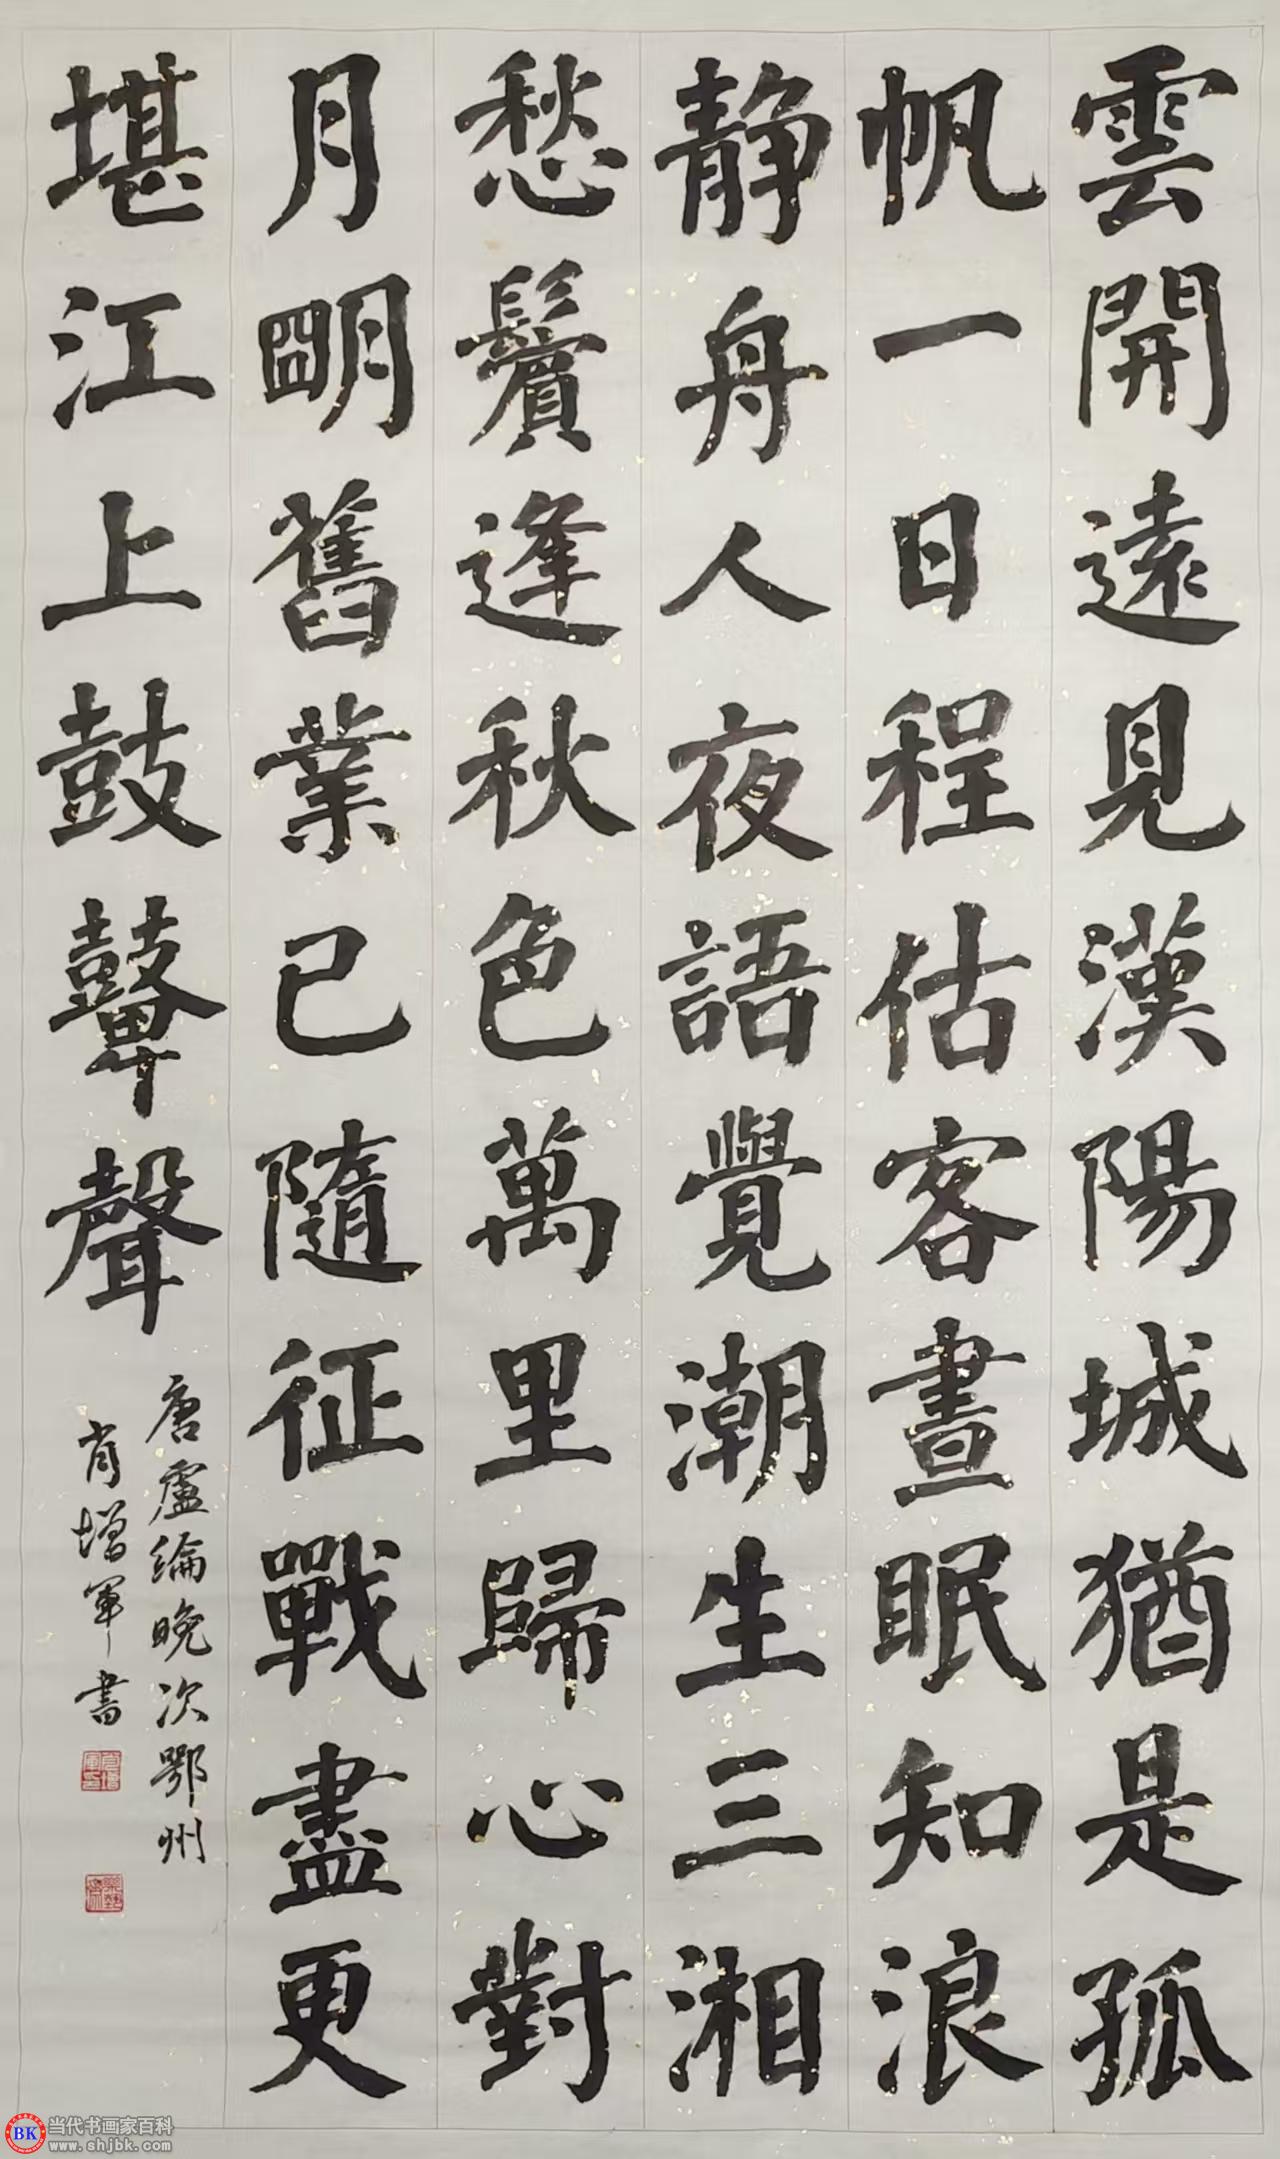 雲開遠見漢陽城猶是孤
帆一日程估客晝眠知浪
静舟人夜語覺潮生三湘
愁鬢逢秋色萬里歸心對
月明舊業已隨征戰盡更
堪江上鼓鼙聲
唐盧綸晚次鄂州
肖增軍書
BK
当代书画家百科
www.shjbk.com